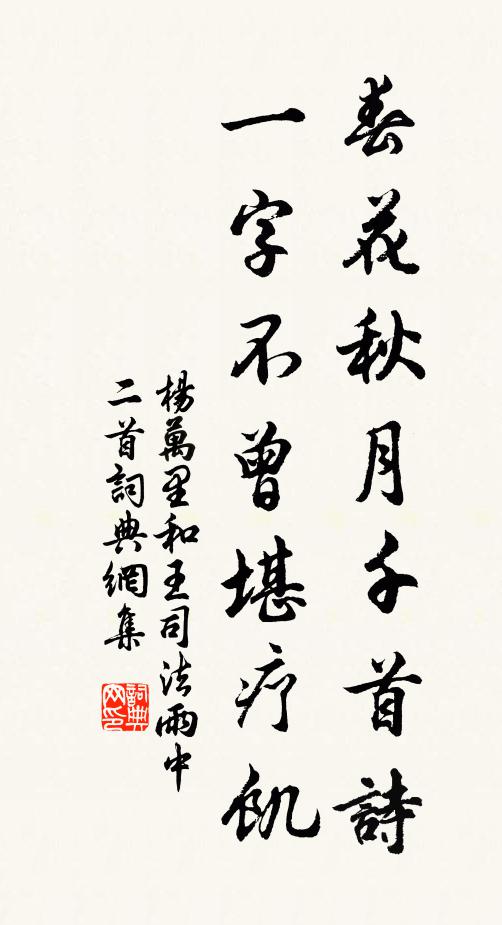 春花秋月千首詩
一字不曾堪疗飢
楊萬里和王司法雨中
二首詞典網集
詞典網印